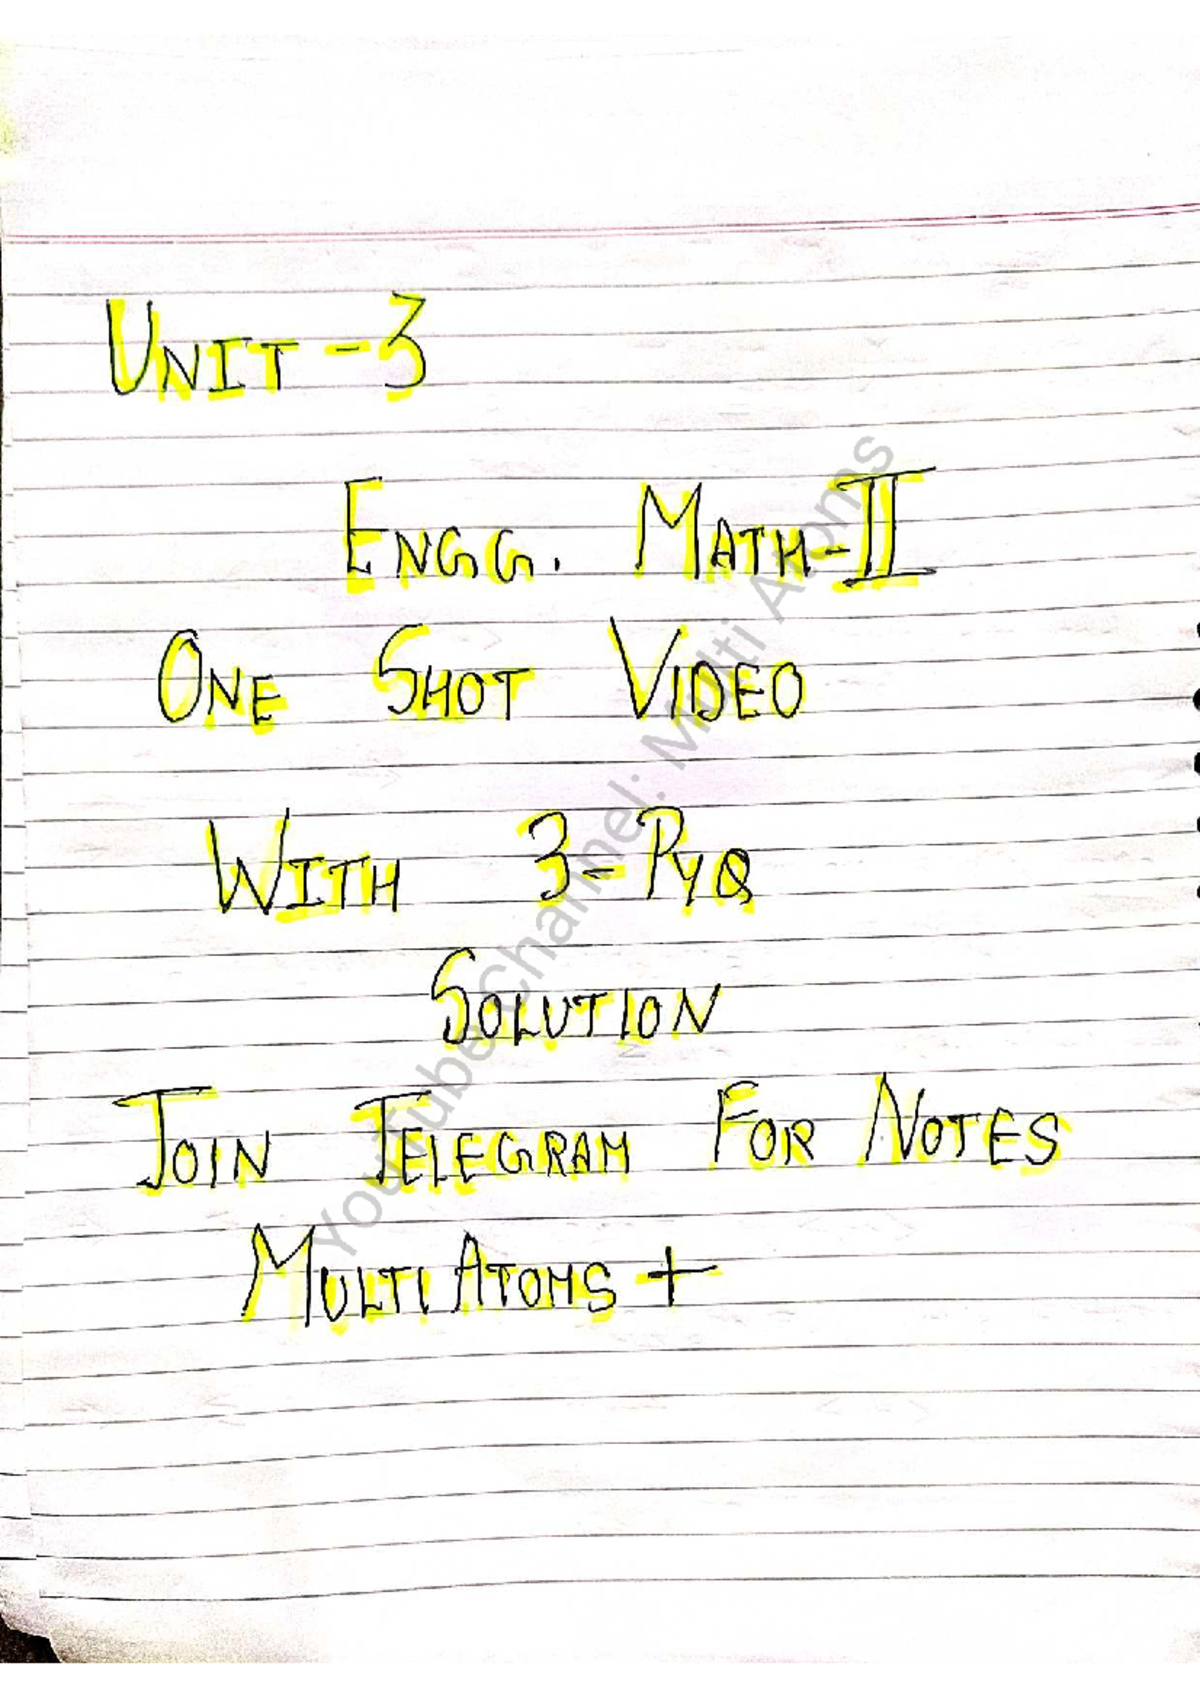 UNIT-3
ENGG. MATH-II
ONE SHOT VIDEO
WITH 3-PYQ
SOLUTION
JOIN TELEGRAM FOR NOTES
MULTI ATOMS +
YouTube Channel: Multi Atoms